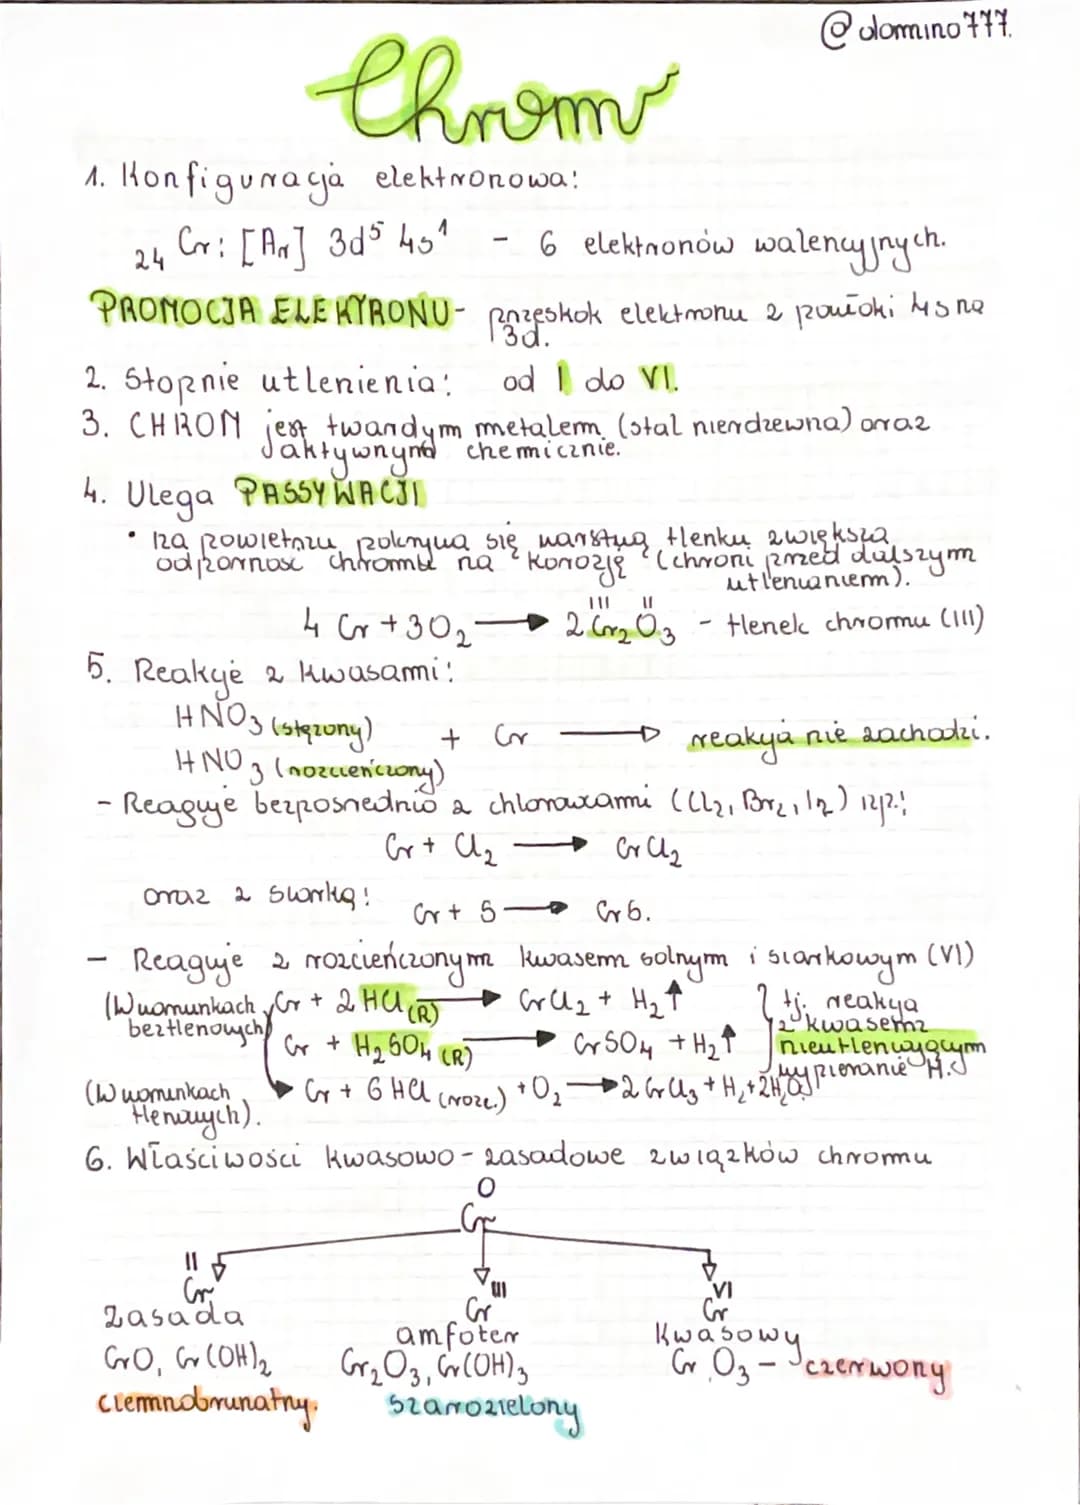 @domino777.
Chrom
1. Konfiguracja elektronowa:
24 Cr: [Ar] 3d⁵ 4s¹ - 6 elektronów walencyjnych.
PROMOCJA ELEKTRONU- przeskok elektronu z powłoki 4s na
3d.
2. Stopnie utlenienia: od I do VI.
3. CHROM jest twardym metalem (stal nierdzewna) oraz
aktywnym chemicznie.
4. Ulega PASSYWACJI
• na powietrzu pokrywa się warstwą tlenku zwiększa
odporność chromu na korozję (chroni przed dalszym
utlenianiem).
4 Cr + 3O₂ → 2 Cr₂O₃ - tlenek chromu (III)
III II
5. Reakcje z kwasami:
HNO₃ (stężony)
+ Cr → reakcja nie zachodzi.
HNO₃ (rozcieńczony)
- Reaguje bezpośrednio z chlorowcami (Cl₂, Br₂, I₂) np.:
Cr + Cl₂ → CrCl₂
oraz z siarką:
Cr + S → CrS.
- Reaguje z rozcieńczonym kwasem solnym i siarkowym (VI)
(W warunkach beztlenowych) Cr + 2 HCl (R) → CrCl₂ + H₂↑
Cr + H₂SO₄ (R) → CrSO₄ + H₂↑
tj. reakcja
z kwasem
nieutleniającym
wypieranie H.
(W warunkach tlenowych). Cr + 6 HCl (rozc.) + O₂ → 2 CrCl₃ + H₂ + 2H₂O
6. Właściwości kwasowo-zasadowe związków chromu
0
Cr
II III VI
Cr Cr Cr
zasada amfoter kwasowy
CrO, Cr(OH)₂ Cr₂O₃, Cr(OH)₃ CrO₃ - czerwony
ciemnobrunatny. szarozielony